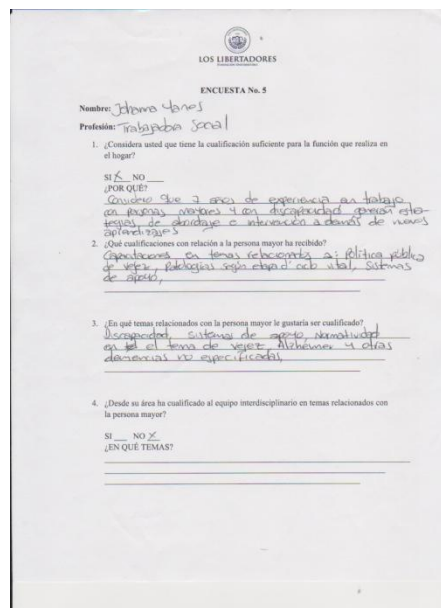 LOS LIBERTADORES
ENCUESTA No. 5
Nombre: Johanna Yanes
Profesión: Trabajadora Social
1. ¿Considera usted que tiene la cualificación suficiente para la función que realiza en
el hogar?
SI X NO
¿POR QUÉ?
Considero que 7 años de experiencia en trabajo
con personas mayores y con discapacidad generan estra-
tegias de abordaje e intervención además de nuevos
aprendizajes
2. ¿Qué cualificaciones con relación a la persona mayor ha recibido?
Capacitaciones en temas relacionados a: Política pública
de vejez, Patologías según etapa d' ciclo vital, Sistemas
de apoyo,
3. ¿En qué temas relacionados con la persona mayor le gustaría ser cualificado?
Discapacidad, sistemas de apoyo, Normatividad
en el tema de vejez, Alzhéimer y otras
demencias no especificadas
4. ¿Desde su área ha cualificado al equipo interdisciplinario en temas relacionados con
la persona mayor?
SI NO X
¿EN QUÉ TEMAS?